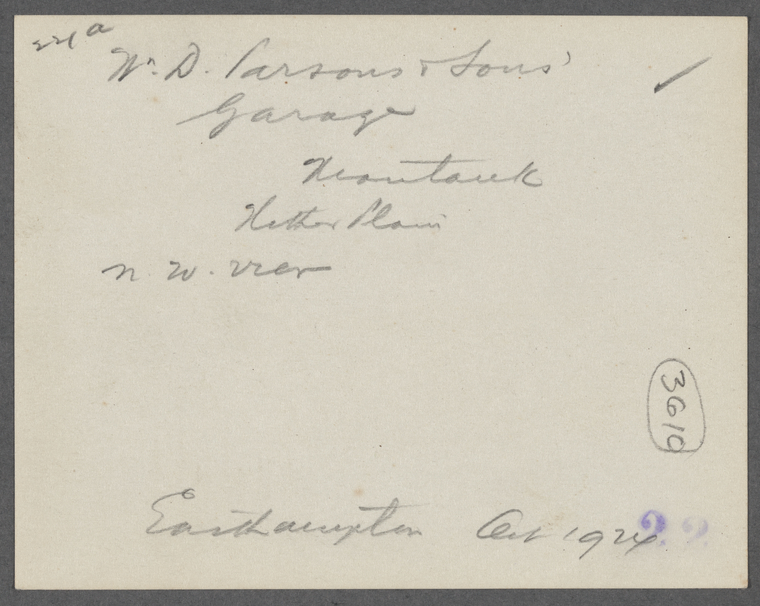 221a
Wm. D. Parsons & Sons'
Garage
Montauk
Hither Plain
N. W. View
3610
Easthampton Oct 1924
22